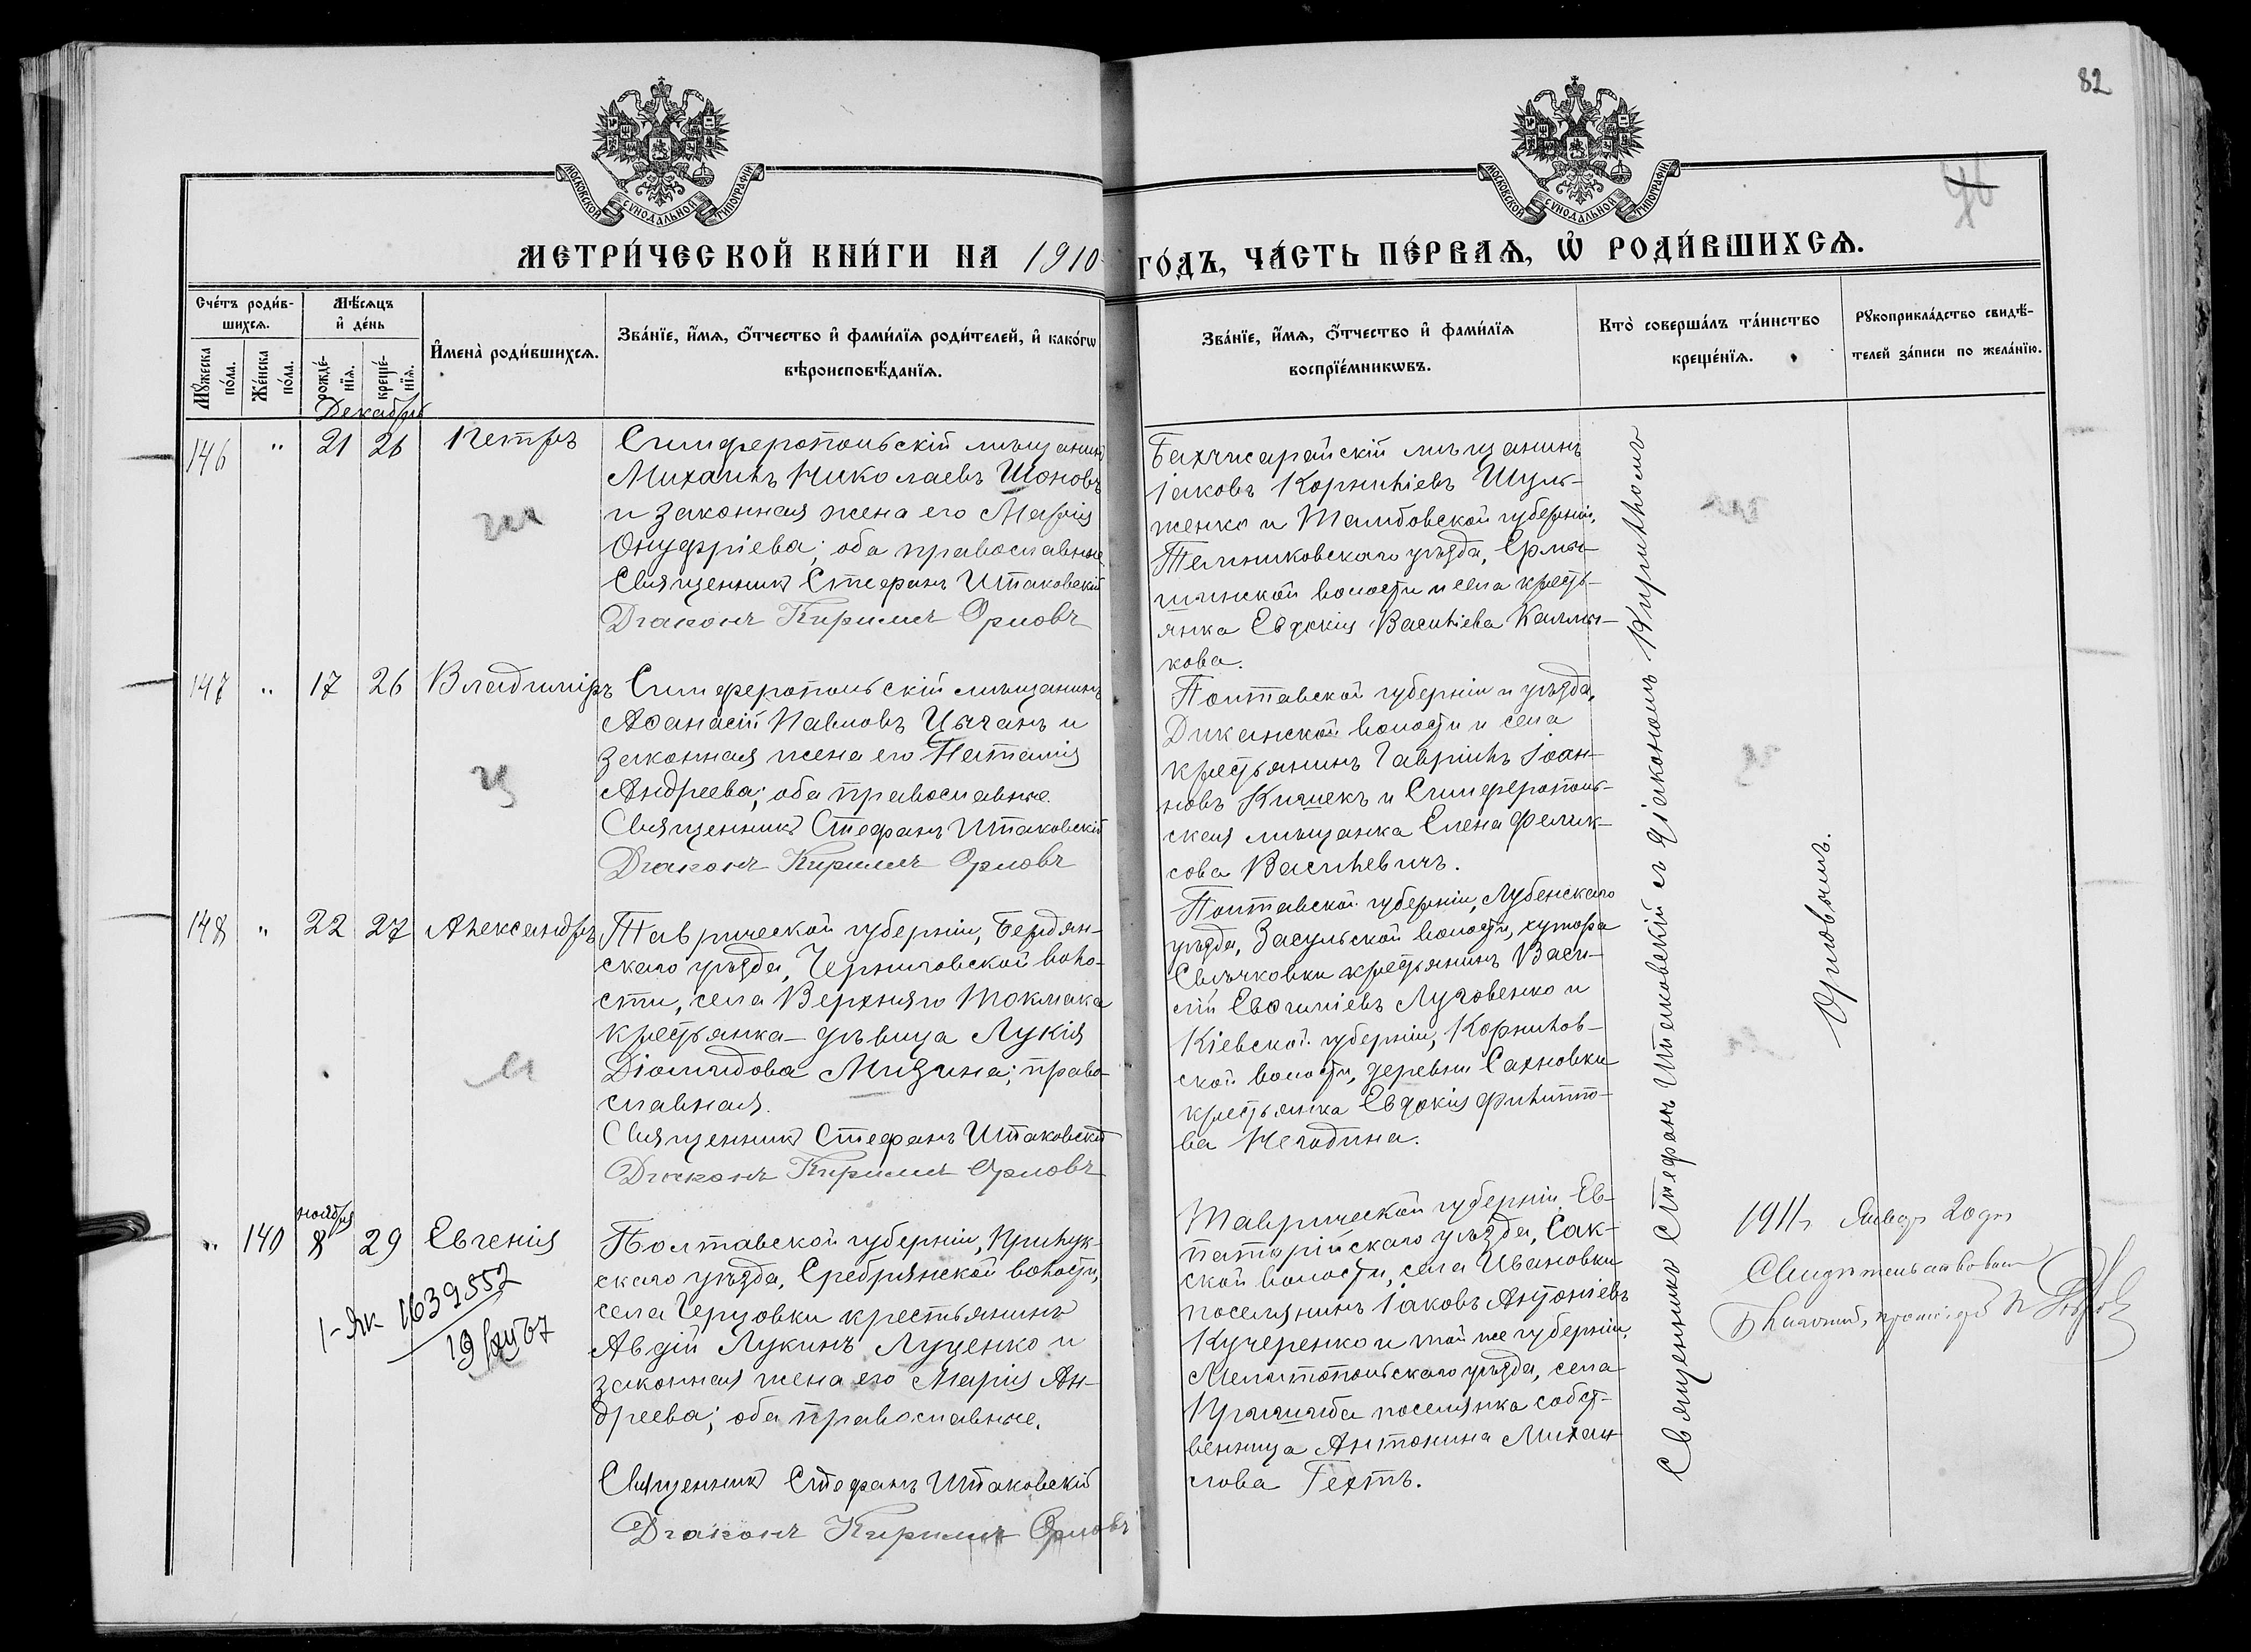 82
МОСКОВСКОЙ СѴНОДАЛЬНОЙ ТИПОГРАФІИ
МОСКОВСКОЙ СѴНОДАЛЬНОЙ ТИПОГРАФІИ
МЕТРИ́ЧЕСКОЙ КНИ́ГИ НА 1910
ГО́ДЪ, ЧА́СТЬ ПЕ́РВАЯ, Ѿ РОДИ́ВШИХСЯ.
Сче́тъ роди́в-
шихся.
Мѣ́сяцъ
и҆ де́нь
Мꙋ́жеска
по́ла.
Же́нска
по́ла.
рожде́-
нїя.
креще́-
нїя.
И҆мена̀ роди́вшихся.
Зва́нїе, и҆́мя, ѻ҆́тчество и҆ фами́лїя роди́телей, и҆ како́гѡ
вѣроисповѣ́данїя.
Зва́нїе, и҆́мя, ѻ҆́тчество и҆ фами́лїя
воспрїе́мникѡвъ.
Кто̀ соверша́лъ та́инство
креще́нїя.
Рꙋкоприкла́дство свидѣ́-
телей за́писи по жела́нїю.
Декабрь
146 " 21 26 Петръ
Симферопольскій мѣщанинъ
Михаилъ Николаевъ Шоновъ
и законная жена его Марія
Онуфріева; оба православные.
Священникъ Стефанъ Штаковскій
Діаконъ Кириллъ Орловъ
Бахчисарайскій мѣщанинъ
Іаковъ Корниліевъ Шуль-
женко и Тамбовской губерніи,
Темниковскаго уѣзда, Ерми-
шинской волости и села кресть-
янка Евдокія Васильева Калмы-
кова.
147 " 17 26 Владиміръ
Симферопольскій мѣщанинъ
Аѳанасій Павловъ Цыганъ и
законная жена его Наталія
Андреева; оба православные.
Священникъ Стефанъ Штаковскій
Діаконъ Кириллъ Орловъ
Полтавской губерніи и уѣзда,
Диканской волости и села
крестьянинъ Гавріилъ Іоан-
новъ Кишекъ и Симферополь-
ская мѣщанка Елена Фелик-
сова Василевичъ.
148 " 22 27 Александръ
Таврической губерніи, Бердян-
скаго уѣзда, Черниговской воло-
сти, села Верхняго Токмака
крестьянка-дѣвица Лукія
Діомидова Мизина; право-
славная.
Священникъ Стефанъ Штаковскій
Діаконъ Кириллъ Орловъ
Полтавской губерніи, Лубенскаго
уѣзда, Засульской волости, хутора
Свѣчковки крестьянинъ Васи-
лій Евѳиміевъ Луговенко и
Кіевской губерніи, Корнилов-
ской волости, деревни Сахновки
крестьянка Евдокія Филиппо-
ва Негодина.
ноября
" 140 8 29 Евгенія
1-ЯК 1639552
Полтавской губерніи, Прилук-
скаго уѣзда, Сребрянской волости,
села Герцовки крестьянинъ
Авдій Лукинъ Луценко и
законная жена его Марія Ан-
дреева; оба православные.
Священникъ Стефанъ Штаковскій
Діаконъ Кириллъ Орловъ
Таврической губерніи, Ев-
паторійскаго уѣзда, Сак-
ской волости, села Ивановки
поселянинъ Іаковъ Антоніевъ
Кучеренко и той же губерніи,
Мелитопольскаго уѣзда, села
поселянка собст-
венница Антонина Михаи-
лова Гехтъ.
Священникъ Стефанъ Штаковскій съ діакономъ Кирилломъ
Орловымъ.
1911 г. Январ. 20 дня
Свидѣтельствовалъ
Благочинный,